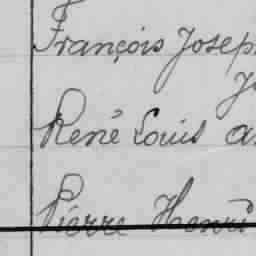 François Josep
René Louis
Pierre Henri